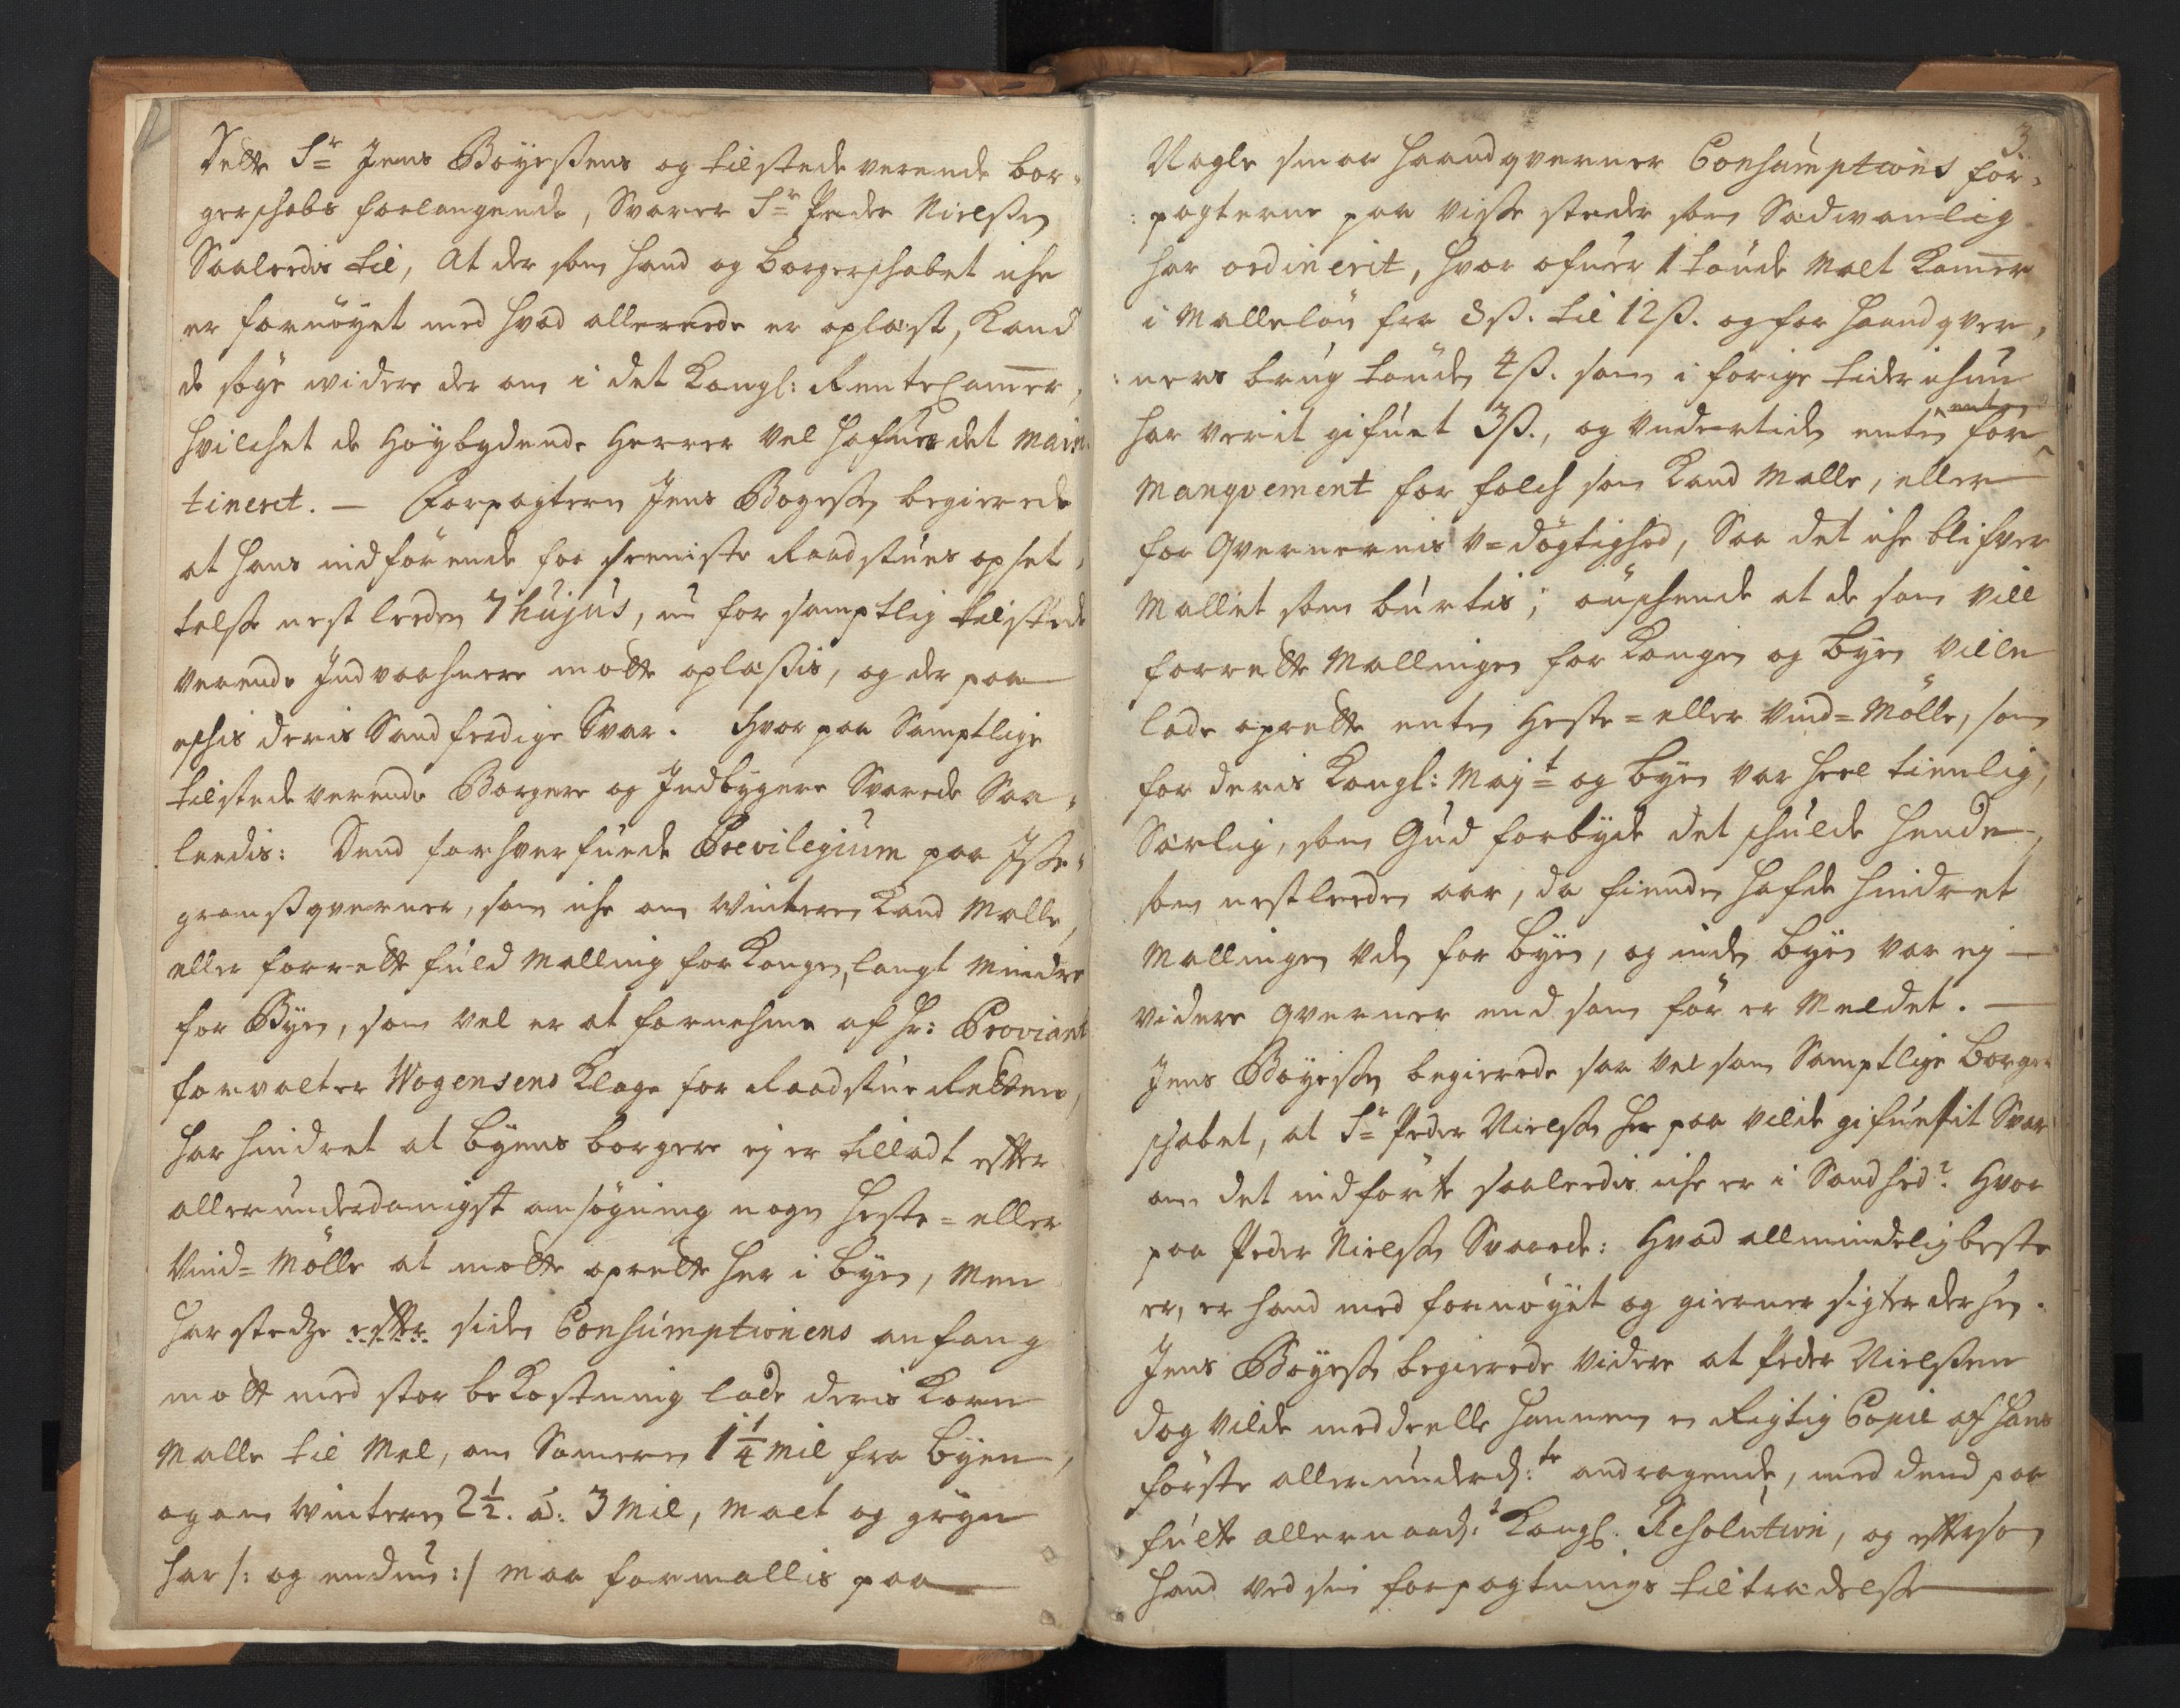 Dette Sr Jens Böyesens og tilstedeverende bor-
gerskabs forlangende, Svarer Sr Peder Nielsen
Saaledis til, At der som hand og borgerskabet iche
er fornöyet med hvad allereede er oplæst, Kand
de söge widere der om i det Kongl: RenteCammer,
hvilchet de Höybydende Herrer vel hafuer det main-
tineret. — Forpagteren Jens Bøyesen begierede
at hans indförende for seeniste Raadstues ophet-
telse nest leeden 7 hujus, nu for samptlig tilstede
verende Indvaahnere motte oplæsis, og der paa
eskis deris Sandferdige Svar. Hvor paa Samptlige
tilstede verende Borgere og Indbygere Svarede Saa-
leedis: Dend forhverfuede Previlegium paa Isse-
gransqverner, som iche om Winteren Kand Malle,
eller forrette fuld Malling for Kongen, langt Mindre
for Byen, som vel er at fornehme af Hr: Proviant
forvalter Wogensens Klage for Raadstue Retten,
har hindret at byens borgere ej er tilladt efter
allerunderdanigst ansögning nogen heste- eller
Vind-Mölle at motte oprette her i byen, Men
har stedze efter siden Consumptionens anfang
mott med stor beKostning lade deris Korn
Malle til Mel, om Someren 1 1/4 Mil fra byen,
og om Winteren 2 1/2. á: 3 Mil, Malt og gryn
har /: og endnu :/ maa formallis paa
3.
Nogle smaa haandqverner Consumptions for-
pagterne paa visse steder som Sædvanlig
har ordinerit, hvor ofuer 1 tönde Malt Kommer
i Malleløn fra 8 ß. til 12 ß. og for haandqver-
ners brug tönden 4 ß. som i forige tider ichun
har verit gifuet 3 ß., og undertiden enten for
Manqvement for folch som Kand Malle, eller
for Qvernernis U-dögtighed, Saa det iche blifver
Mallet som burtis; önschende at de som vill
forrette Mallingen for Kongen og byen ville
lade oprette enten Heste- eller Vind-Mölle, som
for deris Kongl: Majt og byen var heel tienlig,
Særlig, som Gud forbyde det skulde hende,
som nestleeden aar, da fienden hafde hindret
Mallingen uden for byen, og inden byen var ej —
videre qverner end som för er Meldet. —
Jens Böyesen begierede saa vel som Samptlige borger-
skabet, at Sr Peder Nielsen her paa vilde gifue sit Svar
om det indförte saaleedis iche er i Sandhed? Hvor
paa Peder Nielsen Svarede: Hvad allmindelig beste
er, er hand med fornöyet og gierner sigter der hen.
Jens Böyesen begierede videre at Peder Nielsen
dog vilde meddeelle hannem en Rigtig Copie af hans
förste allerunderd:te andragende, med dend paa
fulte allernaad:t Kongl. Resolution, og eftersom
hand ved sin forpagtnings tiltrædelse